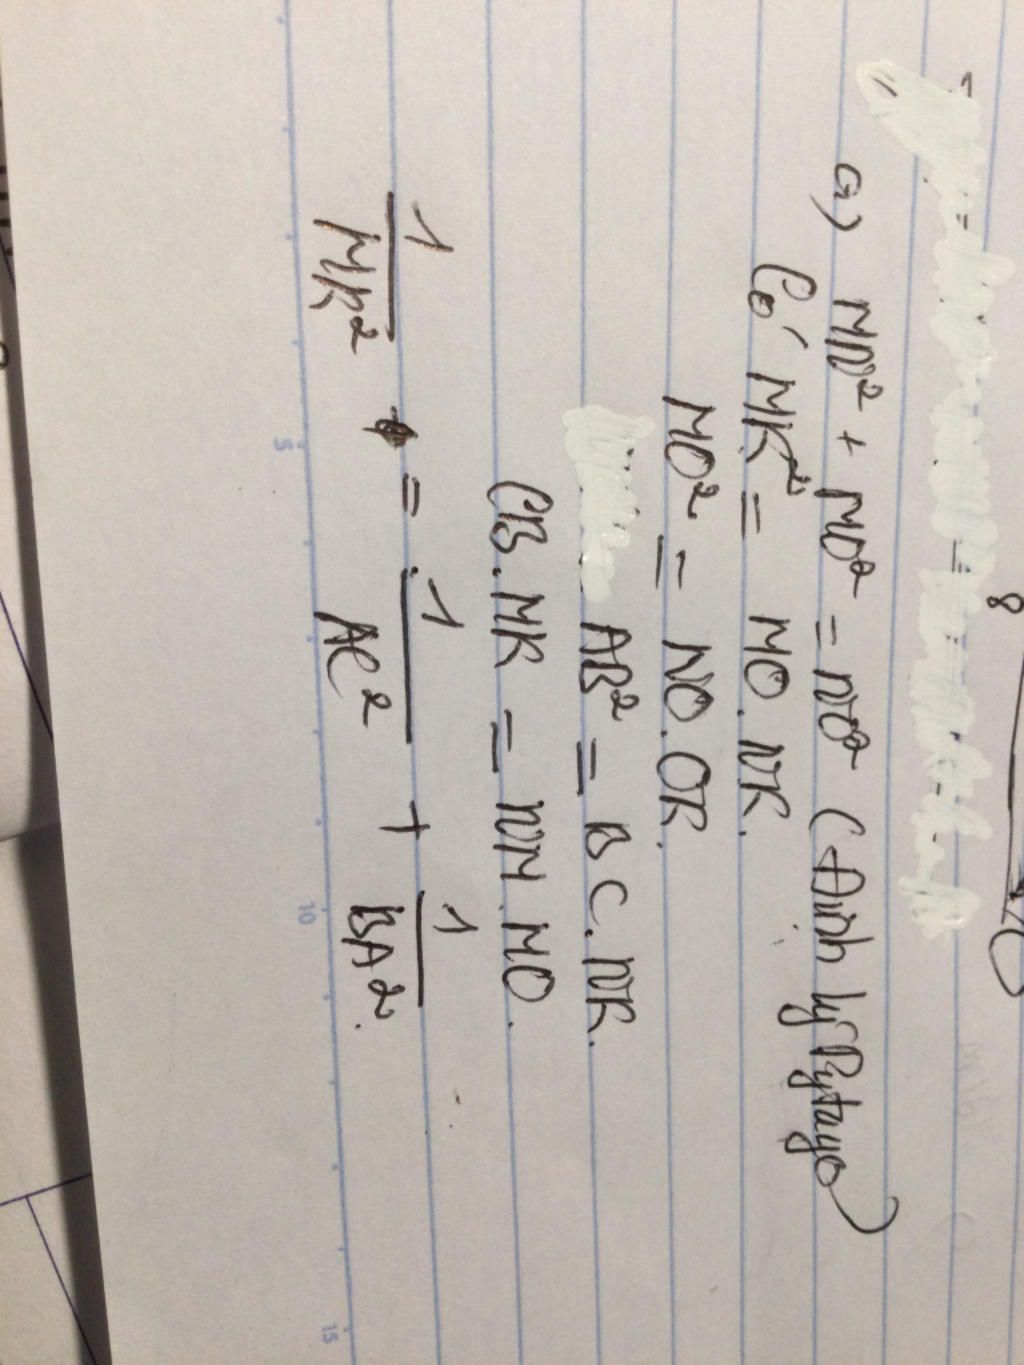 a) MN² + MO² = NO² (Định lý Pytago)
Có MK² = MO . NK.
MO² = NO . OK.
AB² = BC . NK.
CB . MK = NM . MO.
1/MK² = 1/AC² + 1/BA².